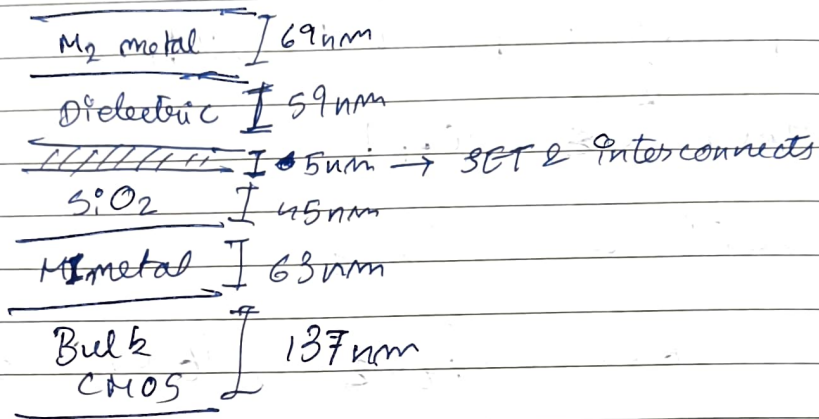 M2 metal 69nm
Dielectric 59nm
5nm → SET & interconnects
SiO2 45nm
M1 metal 63nm
Bulk 137nm
CMOS